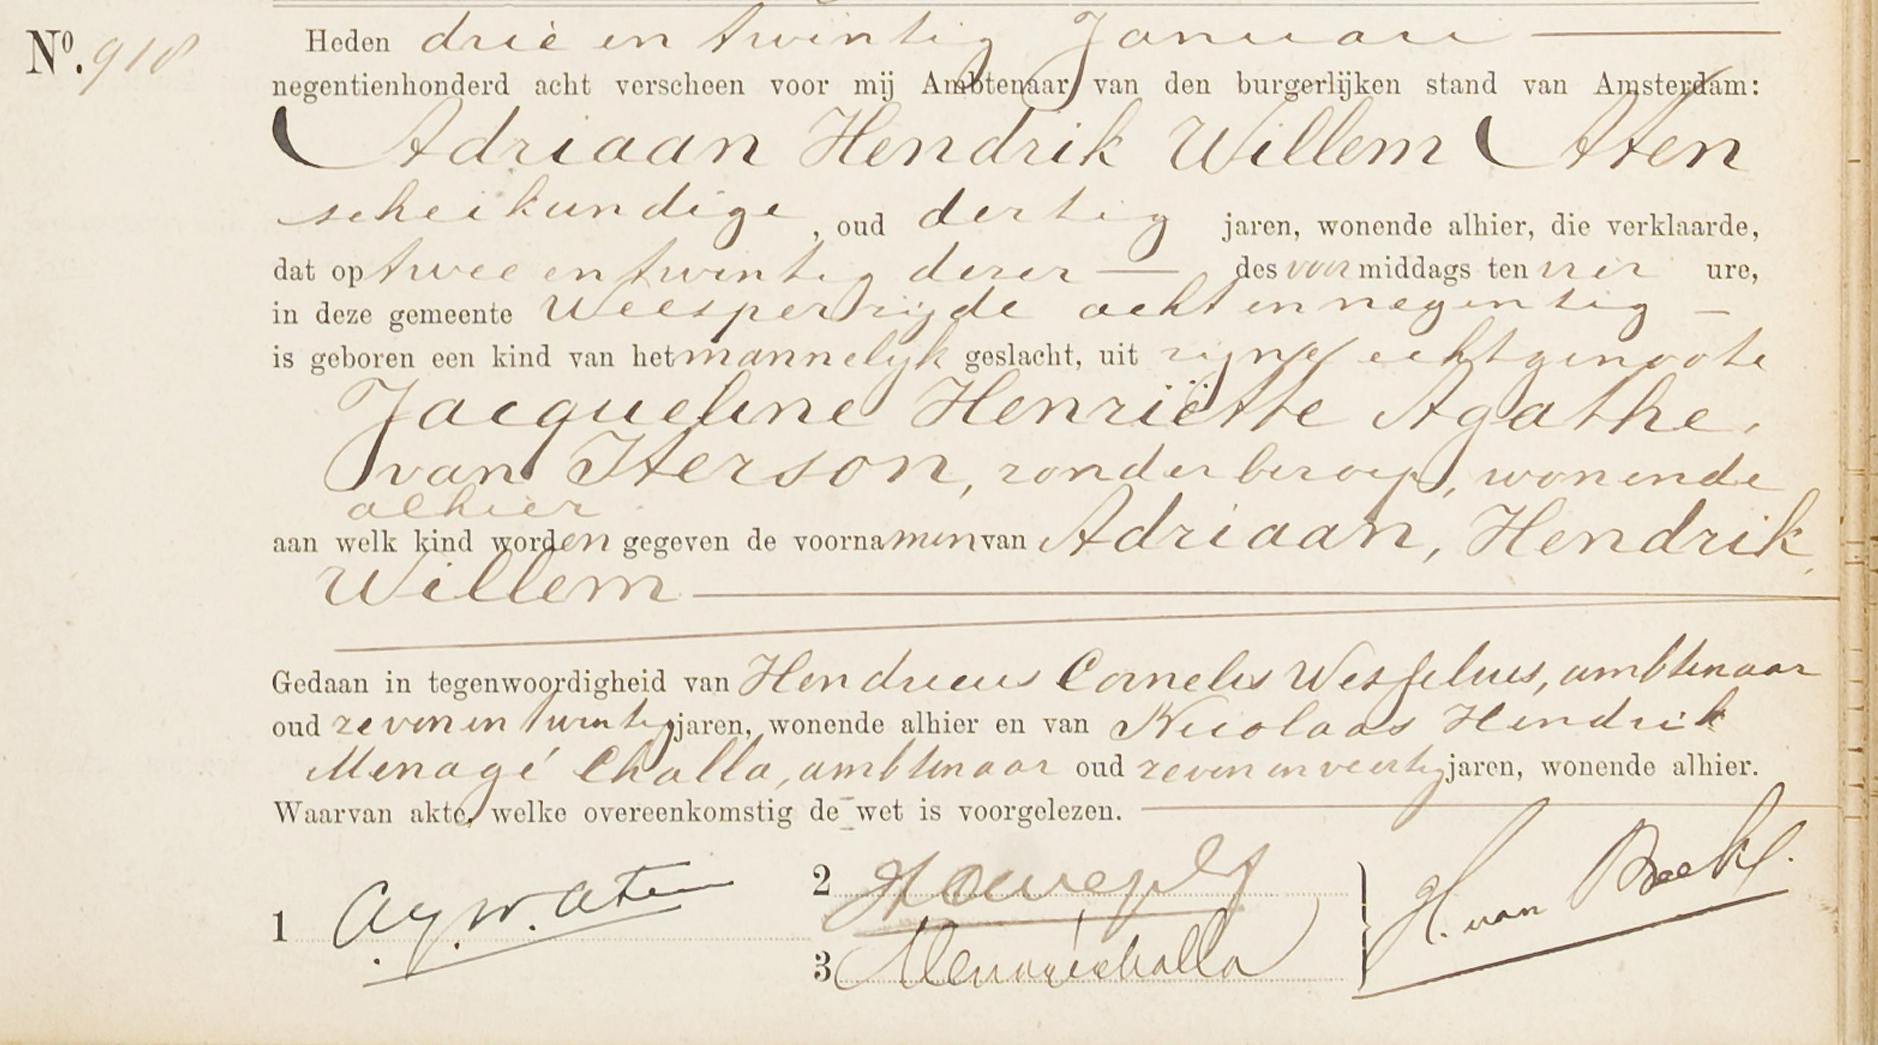 Nº. 918
Heden drie en twintig Januari
negentienhonderd acht verscheen voor mij Ambtenaar van den burgerlijken stand van Amsterdam:
Adriaan Hendrik Willem Aten
scheikundige, oud dertig jaren, wonende alhier, die verklaarde,
dat op twee en twintig dezer des voormiddags ten vier ure,
in deze gemeente Weesperzijde acht en negentig
is geboren een kind van het mannelijk geslacht, uit zijne echtgenoote
Jacqueline Henriëtte Agathe
van Iterson, zonder beroep, wonende
alhier
aan welk kind worden gegeven de voornamen van Adriaan, Hendrik,
Willem
Gedaan in tegenwoordigheid van Hendricus Cornelis Wesselius, ambtenaar
oud zeven en twintig jaren, wonende alhier en van Nicolaas Hendrik
Menagé Challa, ambtenaar oud zeven en veertig jaren, wonende alhier.
Waarvan akte, welke overeenkomstig de wet is voorgelezen.
1 A.H.W. Aten
2
3 Menagé Challa
H. van